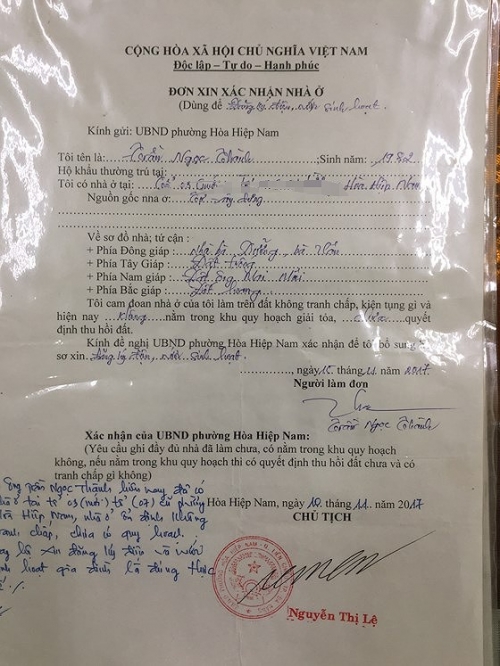 CỘNG HÒA XÃ HỘI CHỦ NGHĨA VIỆT NAM
Độc lập – Tự do – Hạnh phúc
ĐƠN XIN XÁC NHẬN NHÀ Ở
(Dùng để Đăng ký điện, nước sinh hoạt.
Kính gửi: UBND phường Hòa Hiệp Nam
Tôi tên là: Trần Ngọc Thành ;Sinh năm: 1982
Hộ khẩu thường trú tại:
Tôi có nhà ở tại: Hòa Hiệp Nam
Nguồn gốc nhà ở: xây dựng
Về sơ đồ nhà; tứ cận:
+ Phía Đông giáp: Nhà bà
+ Phía Tây Giáp: Đất trống
+ Phía Nam giáp: Đất ông
+ Phía Bắc giáp: Đất
Tôi cam đoan nhà ở của tôi làm trên đất không tranh chấp, kiện tụng gì và
hiện nay không nằm trong khu quy hoạch giải tỏa, chưa quyết
định thu hồi đất.
Kính đề nghị UBND phường Hòa Hiệp Nam xác nhận để tôi bổ sung
sơ xin đăng ký điện, nước sinh hoạt.
, ngày 10. tháng .11. năm 2017
Người làm đơn
Trần Ngọc Thành
Xác nhận của UBND phường Hòa Hiệp Nam:
(Yêu cầu ghi đầy đủ nhà đã làm chưa, có nằm trong khu quy hoạch
không, nếu nằm trong khu quy hoạch thì có quyết định thu hồi đất chưa và có
tranh chấp gì không)
Ông Trần Ngọc Thành hiện nay đã có
nhà ở tại tổ 03 (mới) tổ (07) cũ phường
Hòa Hiệp Nam, nhà ở ổn định không
tranh chấp, chưa có quy hoạch.
nay là xin đăng ký điện và nước
sinh hoạt gia đình là đúng thực
tế.
Hòa Hiệp Nam, ngày 10. tháng 11. năm 2017
CHỦ TỊCH
Nguyễn Thị Lệ